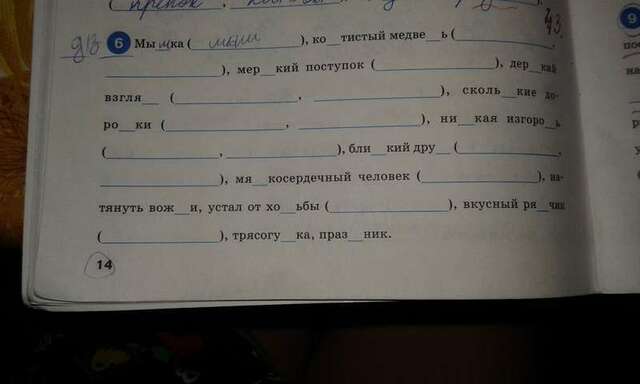 д/з 6 Мы ш ка ( мыши ), ко__тистый медве__ь (____________,
____________), мер__кий поступок (____________), дер__кий
взгля__ (____________, ____________), сколь__кие до-
ро__ки (____________, ____________), ни__кая изгоро__ь
(____________, ____________), бли__кий дру__ (____________,
____________), мя__косердечный человек (____________), на-
тянуть вож__и, устал от хо__ьбы (____________), вкусный ря__чик
(____________), трясогу__ка, праз__ник.
14
9